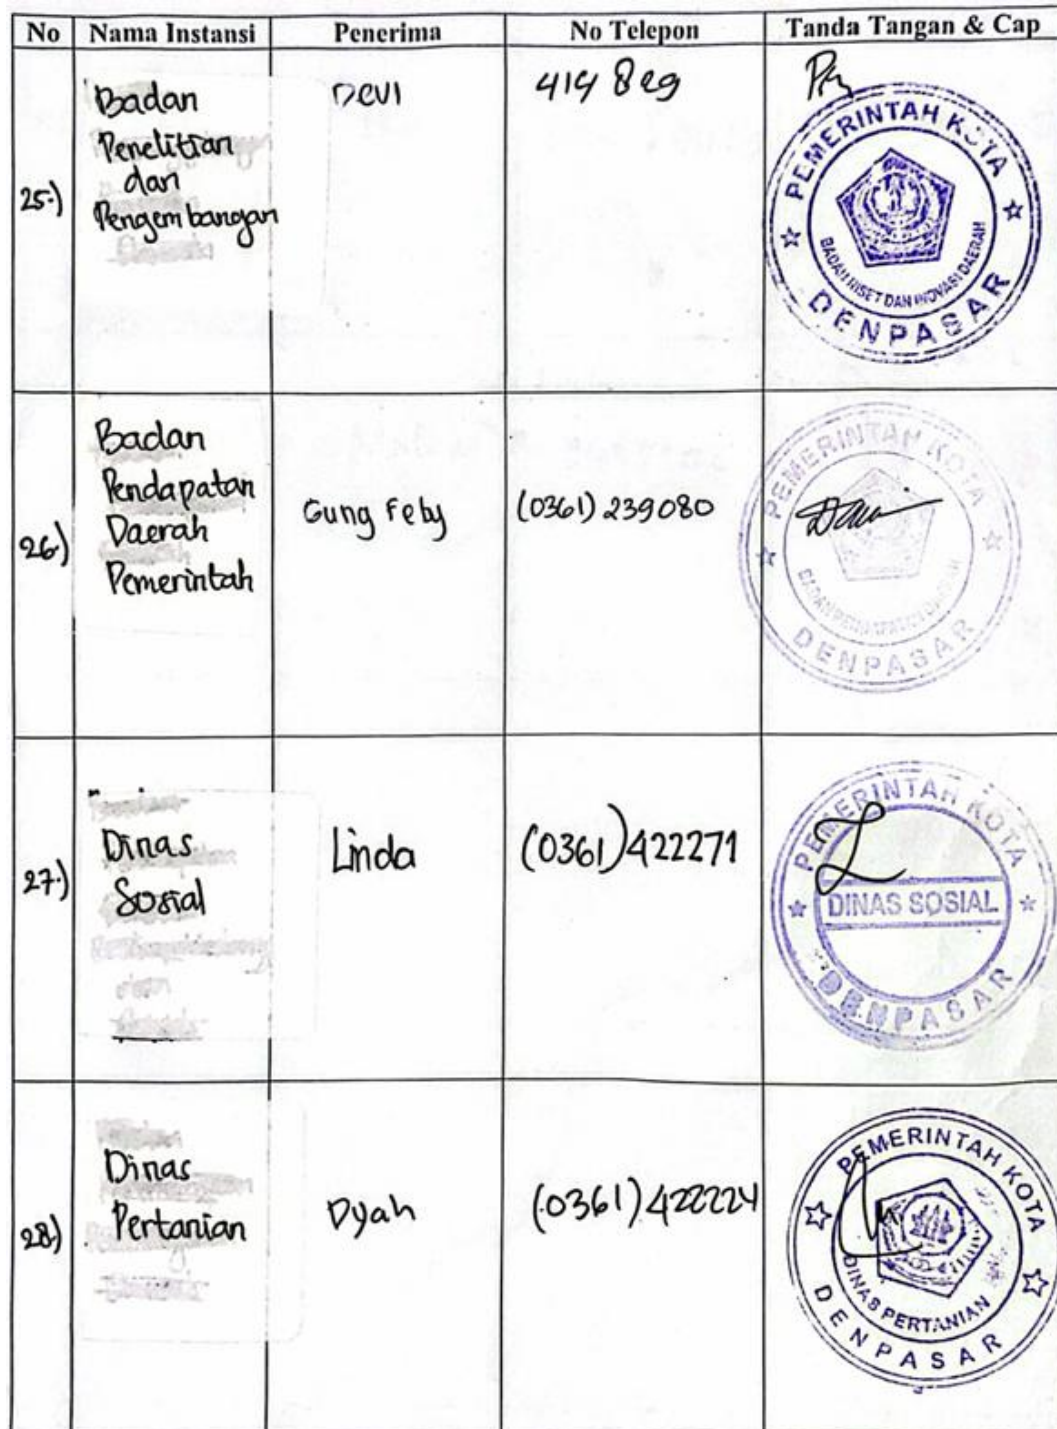 No Nama Instansi Penerima No Telepon Tanda Tangan & Cap
25.) Badan Penelitian dan Pengembangan
DEVI
PEMERINTAH KOTA
BADAN RISET DAN INOVASI DAERAH
DENPASAR
26.) Badan
Pendapatan
Daerah
Pemerintah
Gung Feby
(0361) 239080
PEMERINTAH KOTA
DENPASAR
27.) Dinas
Sosial
Linda
(0361) 422271
PEMERINTAH KOTA
DINAS SOSIAL
DENPASAR
28.) Dinas
Pertanian
Dyah
(0361) 422224
PEMERINTAH KOTA
DINAS PERTANIAN
DENPASAR